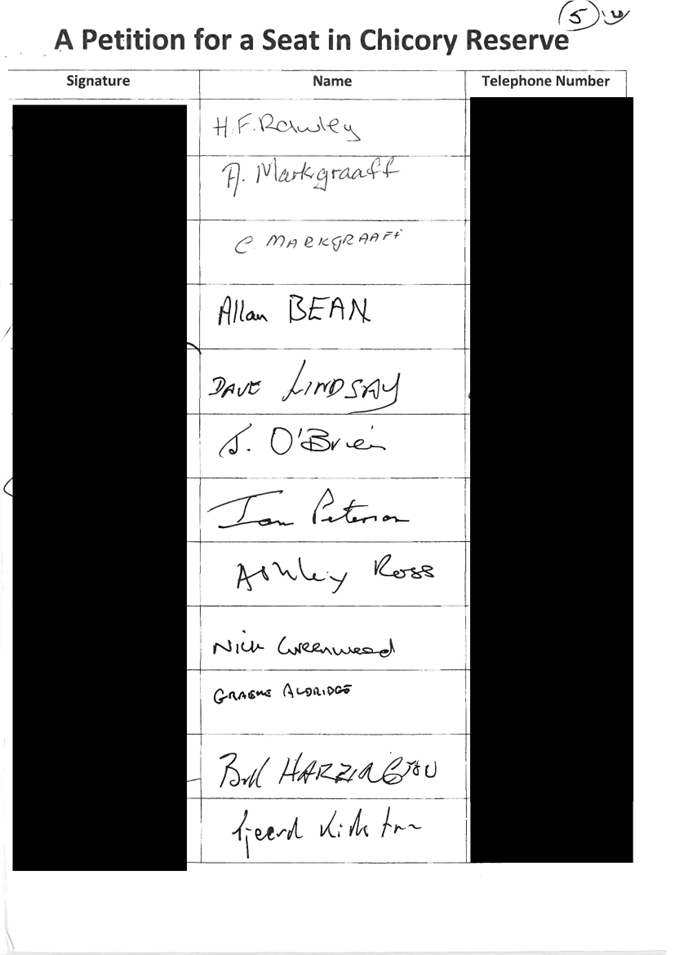 5
A Petition for a Seat in Chicory Reserve
Signature Name Telephone Number
H.F. Rawley
A. Markgraaff
C MARKGRAAFF
Allan BEAN
DAVE LINDSAY
J. O'Brien
Ian Peterson
Ashley Ross
Nick Greenwood
GRAEME ALDRIDGE
HARRINGTON